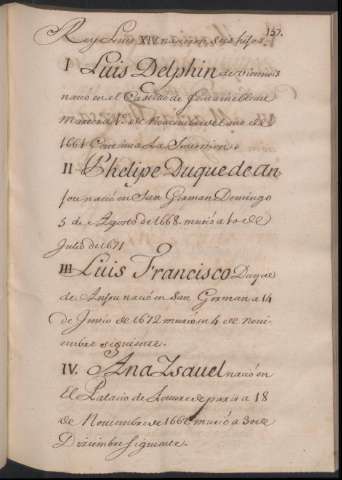 157.
Rey Luis XIV nacieron sus hijos.
I Luis Delphin de Viennois
nació en el Castillo de
a 1.º de Noviembre del año de
1661 Continua la Succession.
II Phelipe Duque de An-
jou nació en San German Domingo
5 de Agosto de 1668 murió a 10 de
Julio de 1671
III Luis Francisco Duque
de Anjou nació en San German a 14
de Junio de 1672 murió en 4 de Novi-
embre siguiente.
IV. Ana Ysavel nació en
El Palacio de Louvre de paris a 18
de Noviembre de 1662 murió a 30 de
Diziembre siguiente.